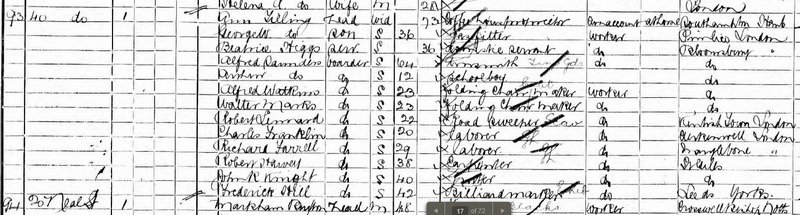 Helena A. do Wife M 28 London
93 40 do 1 Ann Tilling Head Wid 73 Coffee house proprietor own account at home Southampton Hants
George W. do Son S 36 Gasfitter worker Pimlico London
Beatrice Higgs Serv. S 36 Domestic Servant do Bloomsbury
Alfred Saunders boarder S 64 do do
Arthur do do S 12 Schoolboy do
Alfred Watkins do S 23 Folding Chair maker worker do
Walter Marks do S 23 Folding Chair maker do do
Robert Linnard do S 22 Road Sweeper do Kentish Town London
Charles Franklin do S 20 laborer do Clerkenwell London
Richard Farrell do S 29 laborer do Marylebone "
Robert Harvey do S 38 Carpenter do St Giles
John R Knight do S 40 do do
Frederick Hill do S 42 Billiard marker do Leeds Yorks.
94 20 Neal St 1 Markham Head M 48 worker
17 of 72